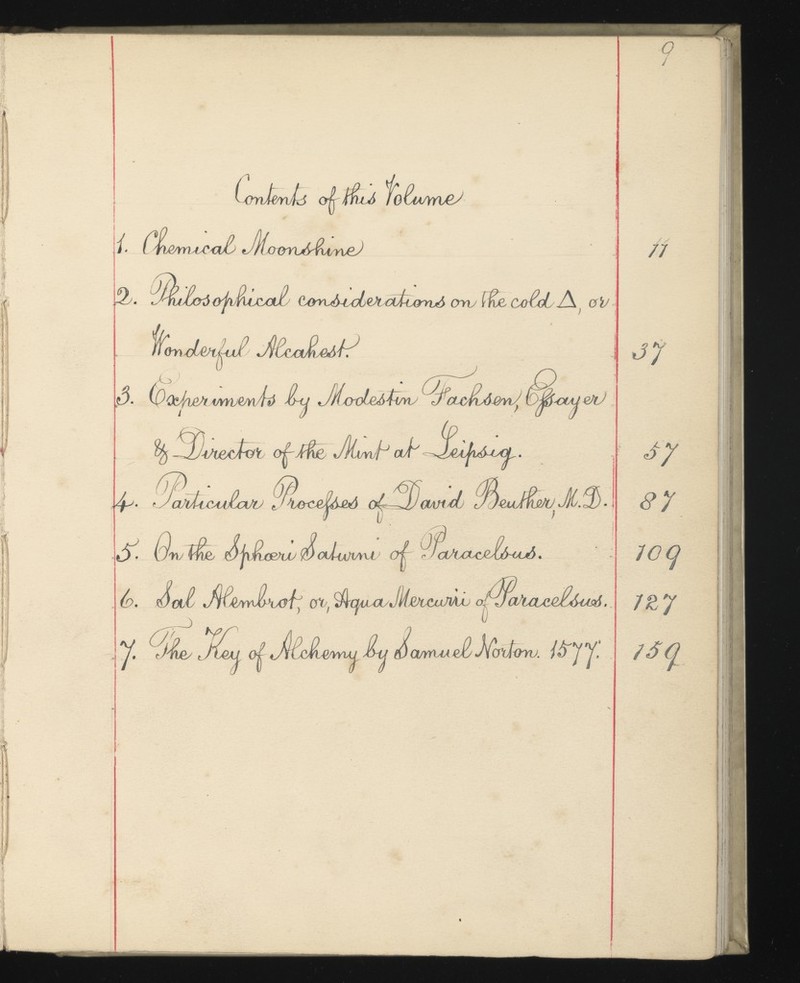 9
Contents of this Volume
1. Chemical Moonshine 11
2. Philosophical considerations on the cold △, or
Wonderful Alcahest. 37
3. Experiments by Modestin Fachsen, Eſsayer
& Director of the Mint at Leipsig. 57
4. Particular Proceſses of David Beuther, M.D. 87
5. On the Sphœri Saturni of Paracelsus. 109
6. Sal Alembrot, or, Aqua Mercurii of Paracelsus. 127
7. The Key of Alchemy by Samuel Norton. 1577. 159